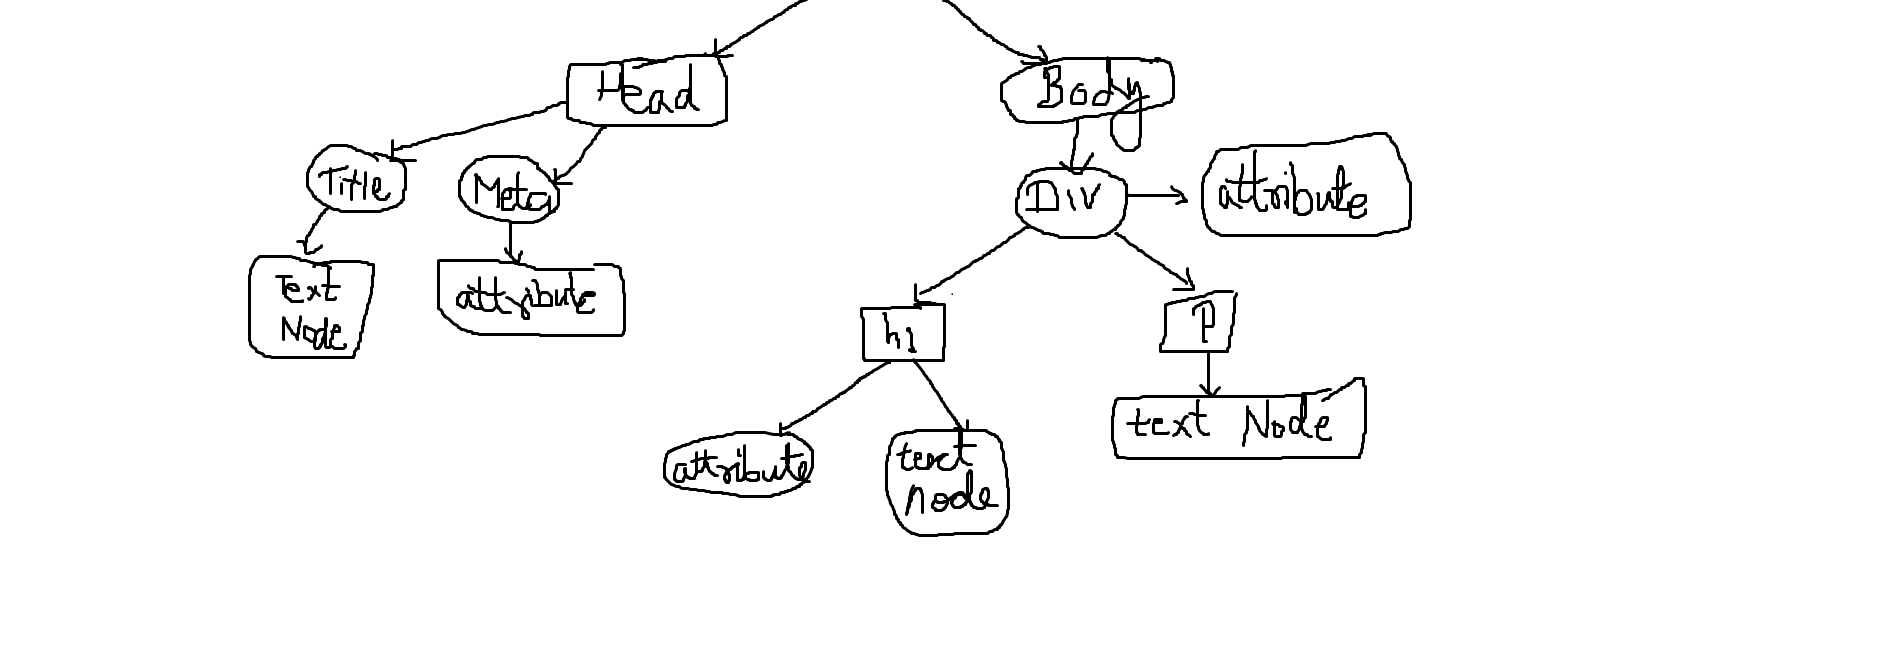 Head
Body
Title
Meta
Div
attribute
Text
Node
attribute
h1
P
attribute
text
node
text Node